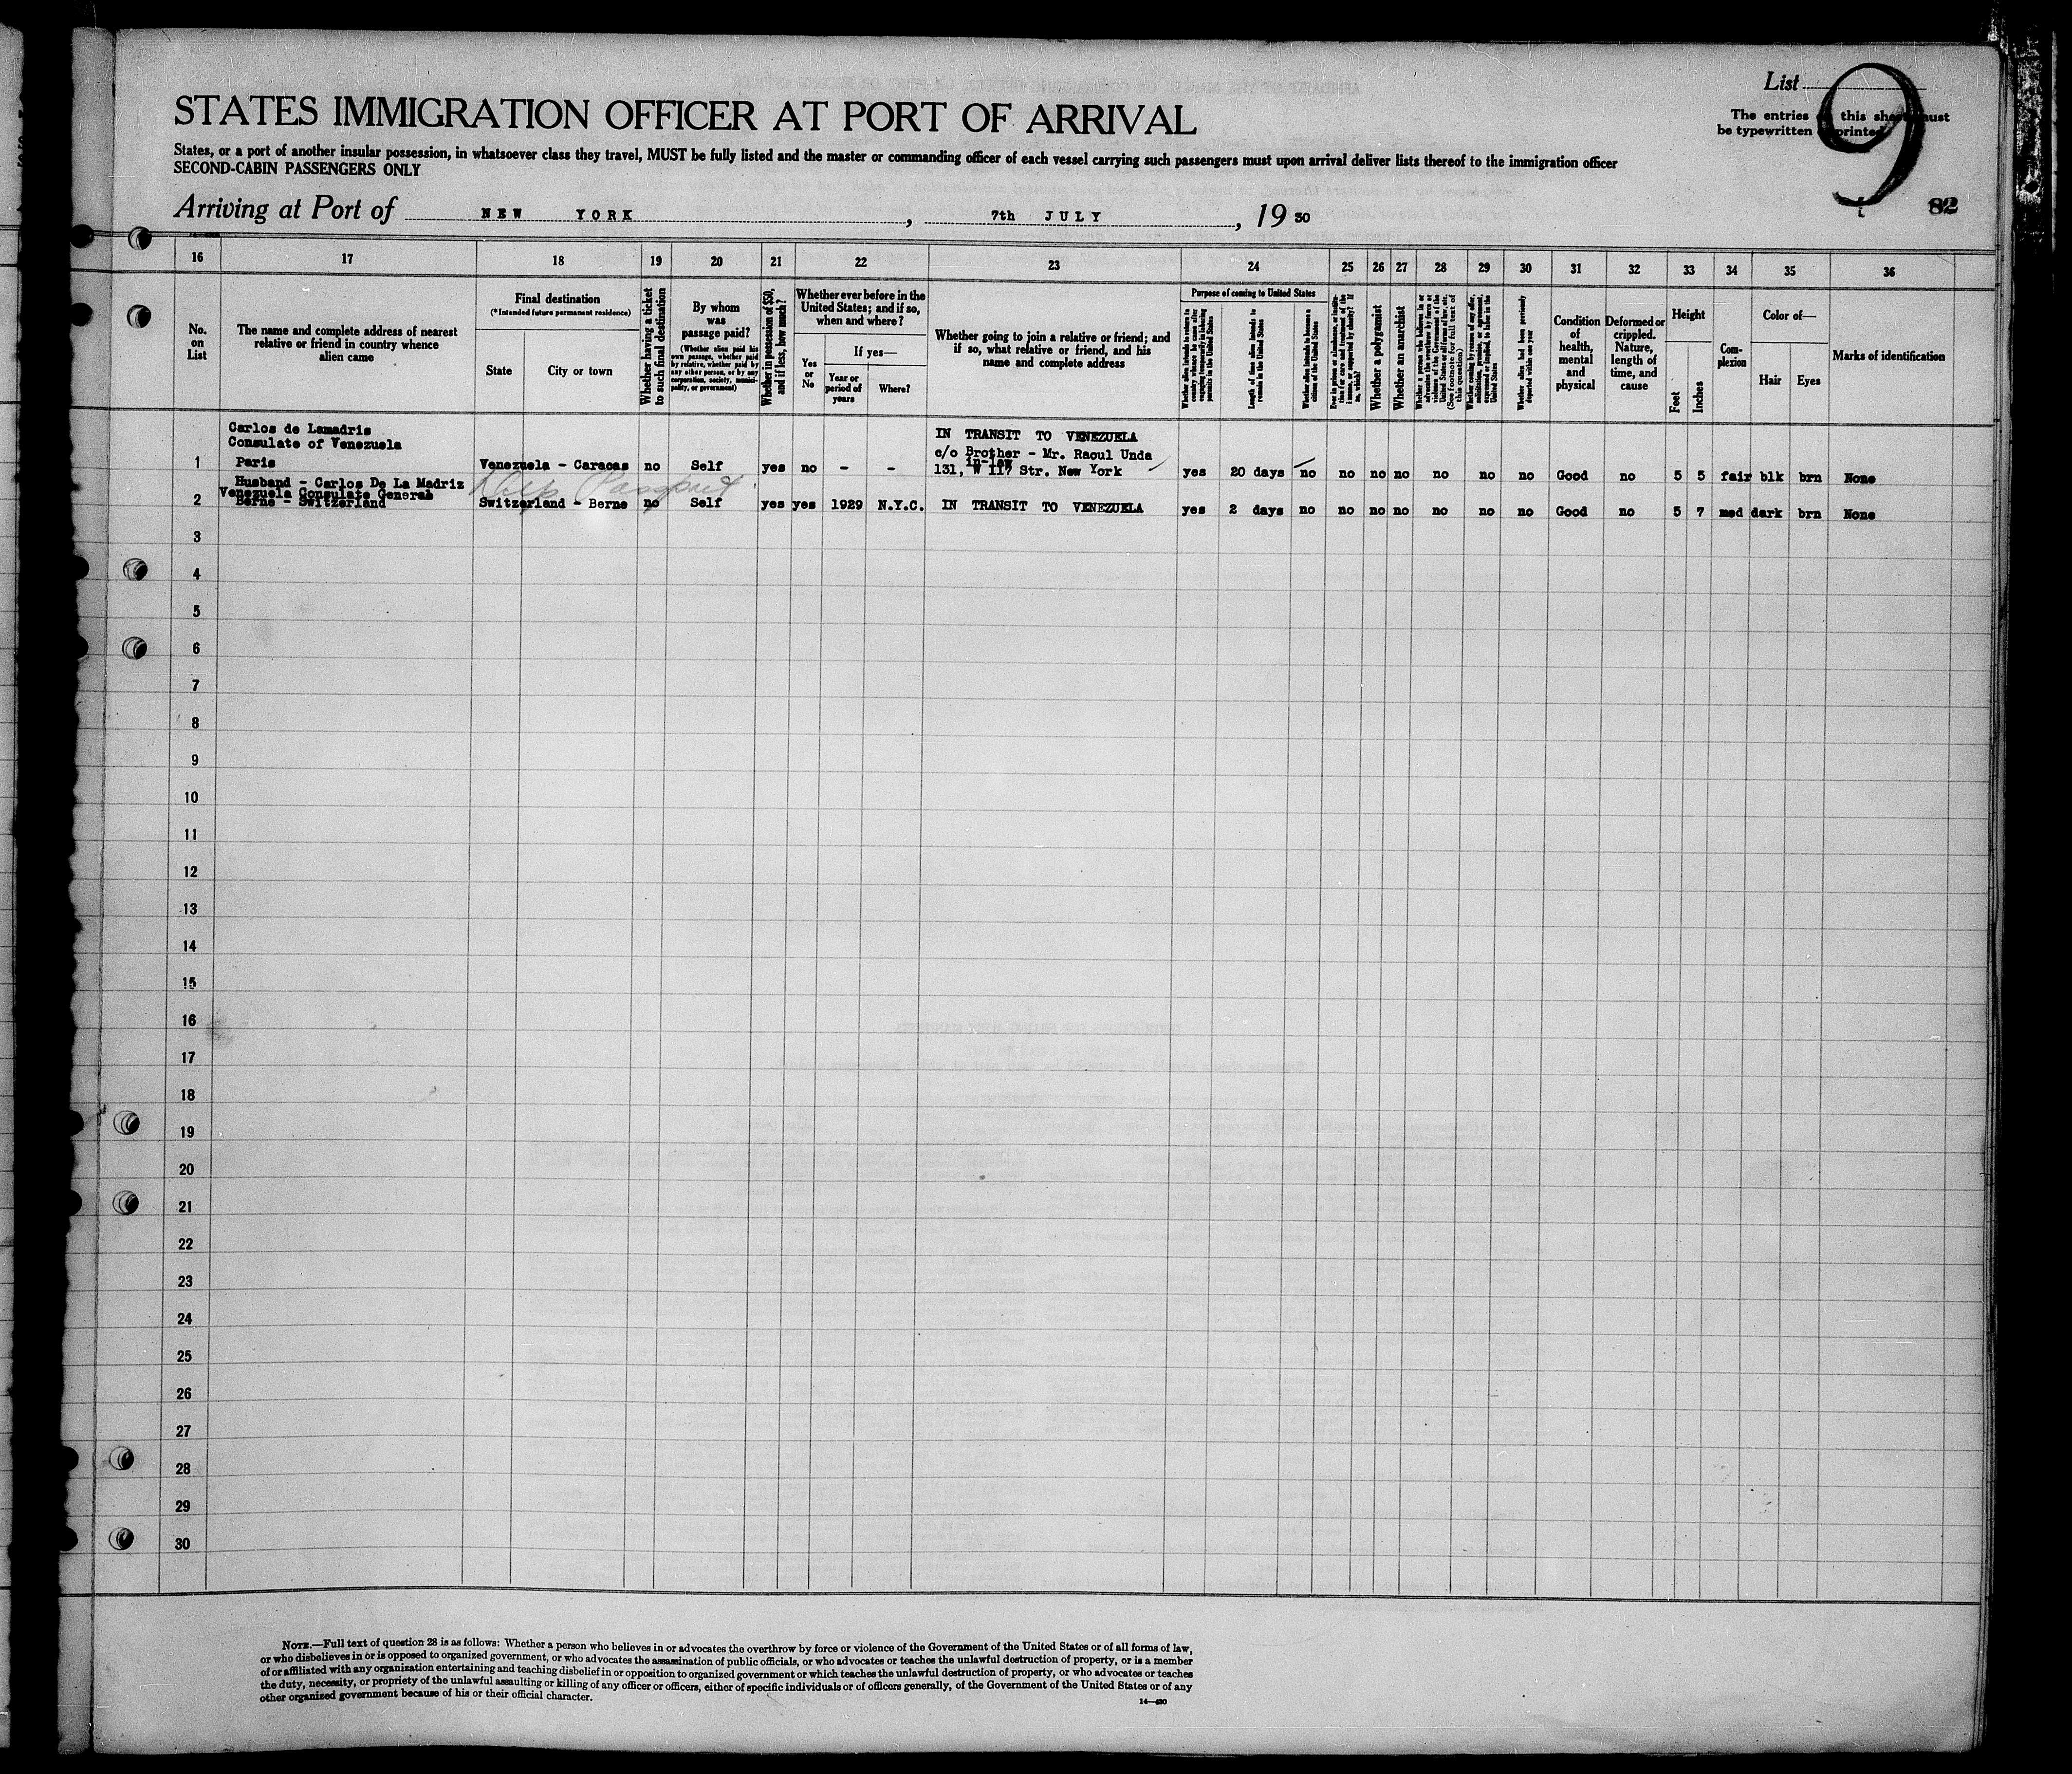 List 9
The entries on this sheet must
be typewritten or printed
STATES IMMIGRATION OFFICER AT PORT OF ARRIVAL
States, or a port of another insular possession, in whatsoever class they travel, MUST be fully listed and the master or commanding officer of each vessel carrying such passengers must upon arrival deliver lists thereof to the immigration officer
SECOND-CABIN PASSENGERS ONLY
82
Arriving at Port of NEW YORK, 7th JULY, 19 30
16 17 18 19 20 21 22 23 24 25 26 27 28 29 30 31 32 33 34 35 36
No.
on
List
The name and complete address of nearest
relative or friend in country whence
alien came
Final destination
(*Intended future permanent residence)
State
City or town
Whether having a ticket
to such final destination
By whom
was
passage paid?
(Whether alien paid his
own passage, whether paid
by relative, whether paid by
any other person, or by any
corporation, society, munici-
pality, or government)
Whether in possession of $50,
and if less, how much?
Whether ever before in the
United States; and if so,
when and where?
Yes
or
No
If yes—
Year or
period of
years
Where?
Whether going to join a relative or friend; and
if so, what relative or friend, and his
name and complete address
Purpose of coming to United States
Whether alien intends to return to
country whence he came after
engaging temporarily in laboring
pursuits in the United States
Length of time alien intends to
remain in the United States
Whether alien intends to become a
citizen of the United States
Ever in prison or almshouse, or institu-
tion for care and treatment of the
insane, or supported by charity? If
so, which?
Whether a polygamist
Whether an anarchist
Whether a person who believes in or
advocates the overthrow by force or
violence of the Government of the
United States or all forms of law, etc.
(See footnote for full text of
this question)
Whether coming by reason of any offer,
solicitation, promise, or agreement,
expressed or implied, to labor in the
United States
Whether alien had been previously
deported within one year
Condition
of
health,
mental
and
physical
Deformed or
crippled.
Nature,
length of
time, and
cause
Height
Feet
Inches
Com-
plexion
Color of—
Hair
Eyes
Marks of identification
Carlos de Lamadris
Consulate of Venezuela
IN TRANSIT TO VENEZUELA
c/o Brother - Mr. Raoul Unda
in-law
1 Paris Venezuela - Caracas no Self yes no - - 131, W 117 Str. New York yes 20 days no no no no no no no Good no 5 5 fair blk brn None
Husband - Carlos De La Madriz
Venezuela Consulate General
Passport
2 Berne - Switzerland Switzerland - Berne no Self yes yes 1929 N.Y.C. IN TRANSIT TO VENEZUELA yes 2 days no no no no no no no Good no 5 7 med dark brn None
3
4
5
6
7
8
9
10
11
12
13
14
15
16
17
18
19
20
21
22
23
24
25
26
27
28
29
30
NOTE.—Full text of question 28 is as follows: Whether a person who believes in or advocates the overthrow by force or violence of the Government of the United States or of all forms of law,
or who disbelieves in or is opposed to organized government, or who advocates the assassination of public officials, or who advocates or teaches the unlawful destruction of property, or is a member
of or affiliated with any organization entertaining and teaching disbelief in or opposition to organized government or which teaches the unlawful destruction of property, or who advocates or teaches
the duty, necessity, or propriety of the unlawful assaulting or killing of any officer or officers, either of specific individuals or of officers generally, of the Government of the United States or of any
other organized government because of his or their official character.
14—430